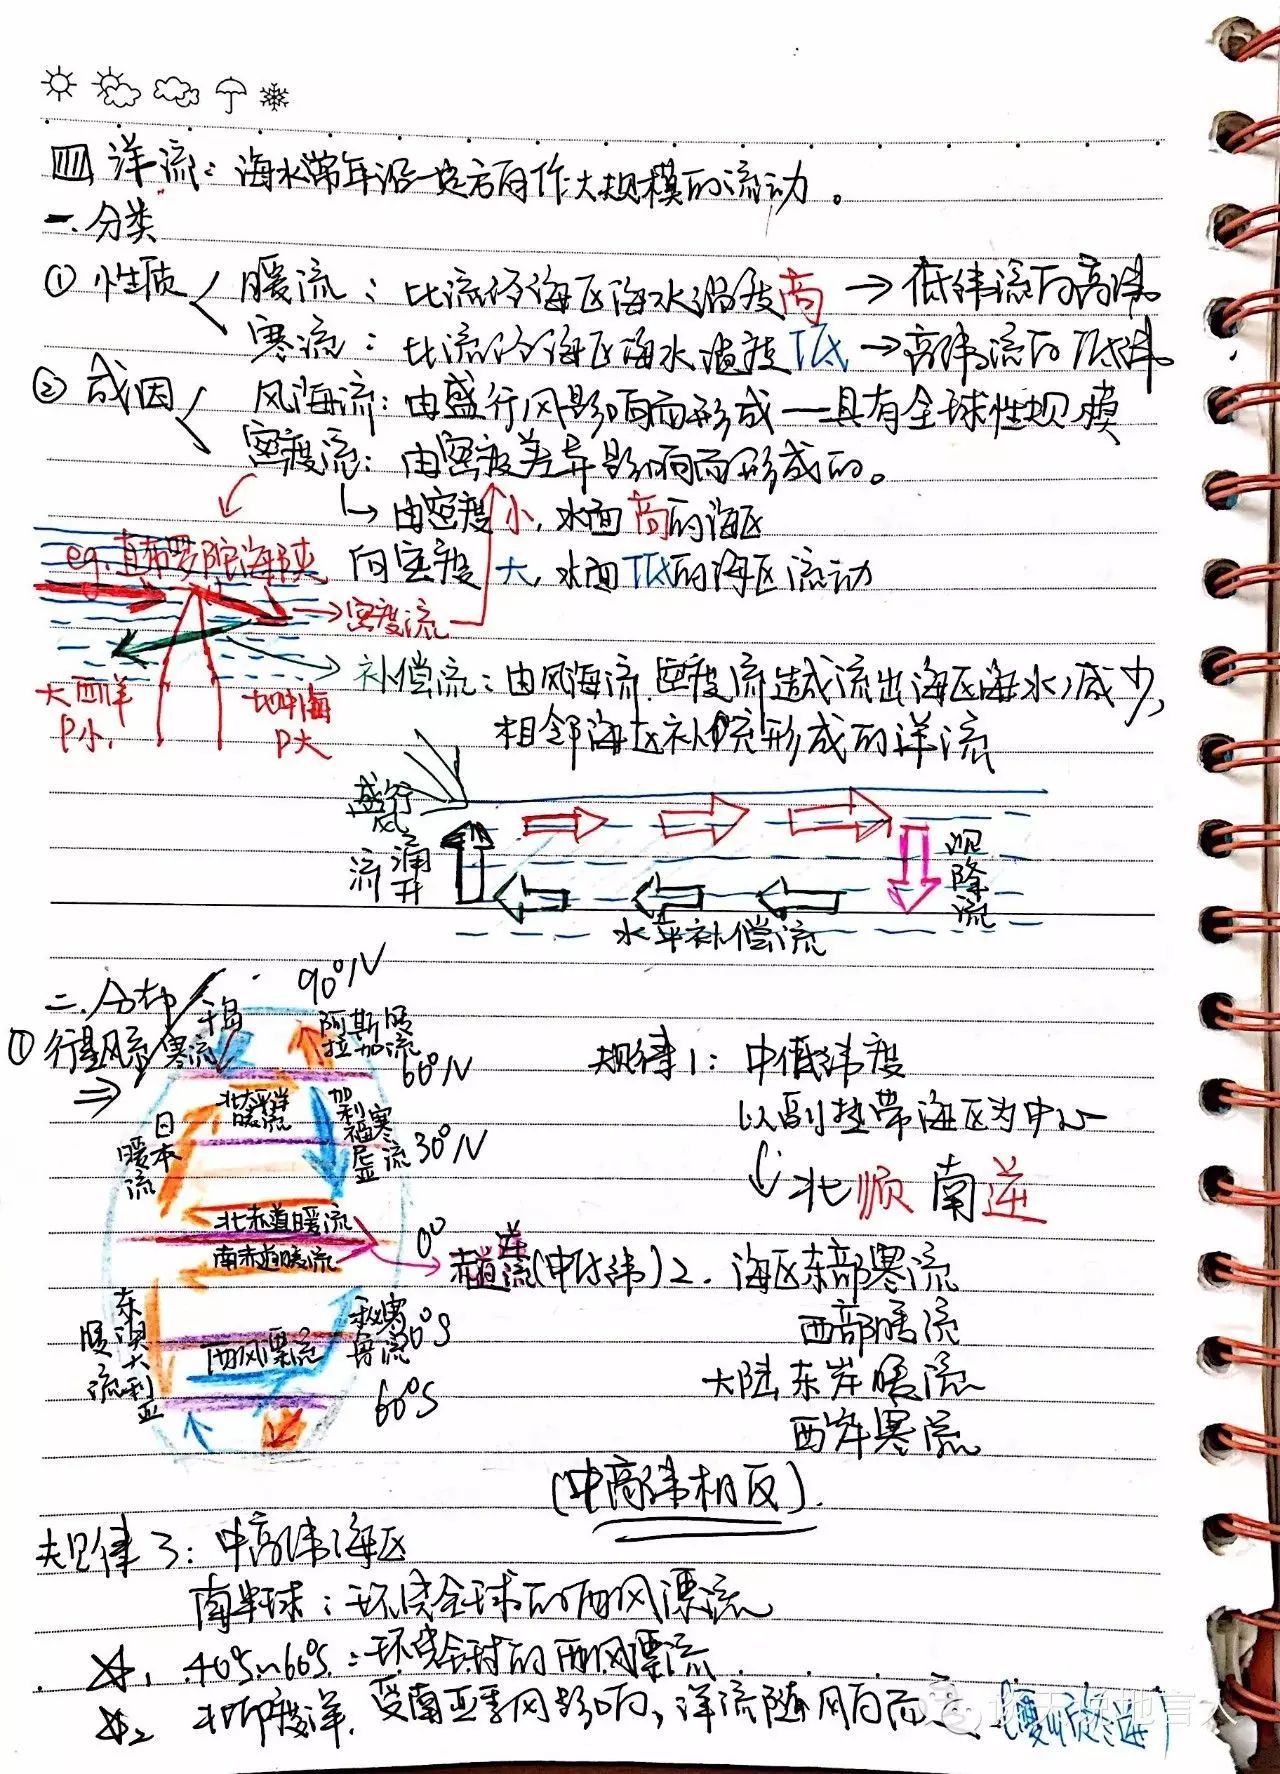 四 洋流：海水常年沿一定方向作大规模的流动。
一.分类
① 性质 暖流：比流经海区海水温度高 → 低纬流向高纬
寒流：比流经海区海水温度低 → 高纬流向低纬
② 成因 风海流：由盛行风影响而形成—具有全球性规模
密度流：由密度差异影响而形成的。
↳ 由密度小，水面高的海区
eg.直布罗陀海峡 向密度大，水面低的海区流动
密度流
补偿流：由风海流.密度流造成流出海区海水减少，
大西洋 地中海
ρ小. ρ大
相邻海区补偿形成的洋流
盛行风
涌升流
沉降流
水平补偿流
二.分布
90°N
① 行星风系
千岛寒流
阿拉斯加暖流
60°N
规律1：中低纬度
北太平洋暖流
日本暖流
加利福尼亚寒流
30°N
以副热带海区为中心
北顺南逆
北赤道暖流
0°
南赤道暖流
赤道逆流
(中低纬) 2. 海区东部寒流
西部暖流
东澳大利亚暖流
西风漂流
秘鲁寒流
30°S
大陆东岸暖流
60°S
西岸寒流
(中高纬相反).
规律3：中高纬海区
南半球：环绕全球的西风漂流
☆1. 40°S~60°S：环绕全球的西风漂流
☆2 北印度洋.受南亚季风影响，洋流随风向而
(夏顺冬逆)